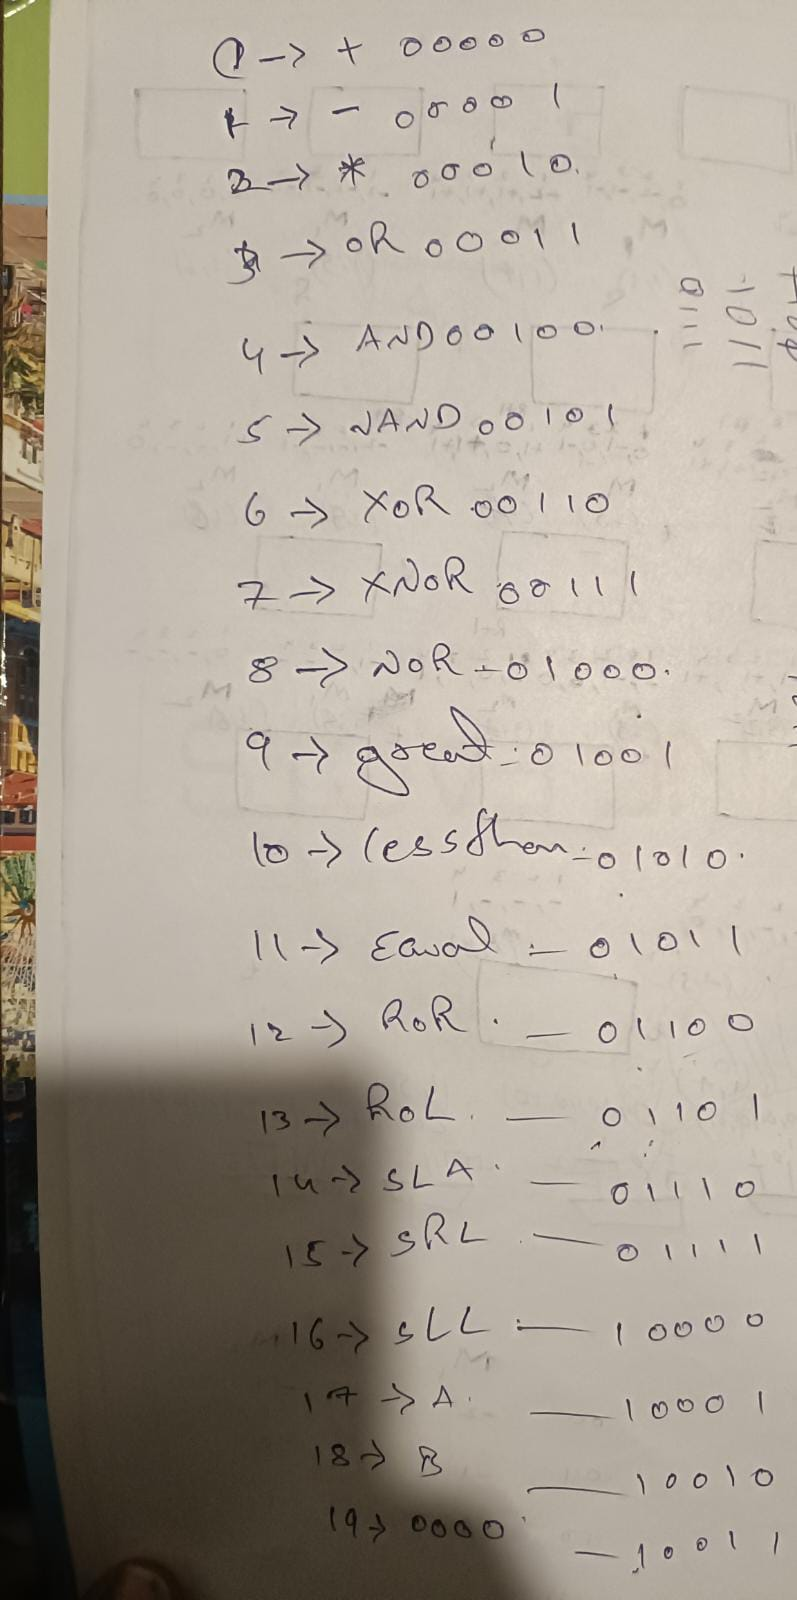 0 -> + 00000
1 -> - 00001
2 -> * 00010.
3 -> OR 00011
4 -> AND 00100.
5 -> NAND 00101
6 -> XOR 00110
7 -> XNOR 00111
8 -> NOR - 01000.
9 -> great - 01001
10 -> lessthan - 01010.
11 -> Equal - 01011
12 -> ROR. - 01100
13 -> ROL. - 01101
14 -> SLA. - 01110
15 -> SRL. - 01111
16 -> SLL - 10000
17 -> A. - 10001
18 -> B - 10010
19 -> 0000 - 10011